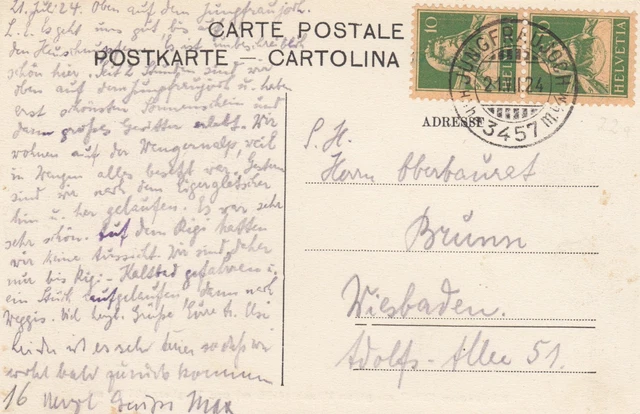 21. Jul. 24. Oben auf dem Jungfraujoch.
L. E. Es geht uns gut bis auf
den Es ist unbeschreiblich
schön hier. Seit 2 Stunden sind wir
oben auf dem Jungfraujoch u. haben
erst schönsten Sonnenschein und
dann großes Gewitter erlebt. Wir
wohnen auf der Wengernalp, weil
in Wengen alles besetzt war. Gestern
sind wir nach dem Eigergletscher
hin u. her gelaufen. Es war sehr
sehr schön. Auf dem Rigi hatten
wir keine Aussicht. Wir sind daher
nur bis Rigi-Kaltbad gefahren u.
ein Stück aufgelaufen, dann nach
Weggis. Viel herzl. Grüße Eure tr. Else
Leider ist es sehr teuer so daß wir
wohl bald zurück kommen
16 Herzl Max
CARTE POSTALE
POSTKARTE — CARTOLINA
10
HELVETIA
HELVETIA
JUNGFRAUJOCH
21.VII.24
3457 m.ü.M.
ADRESSE
S. H.
Herrn Oberbaurat
Brunn
Wiesbaden.
Adolfs-Allee 51.